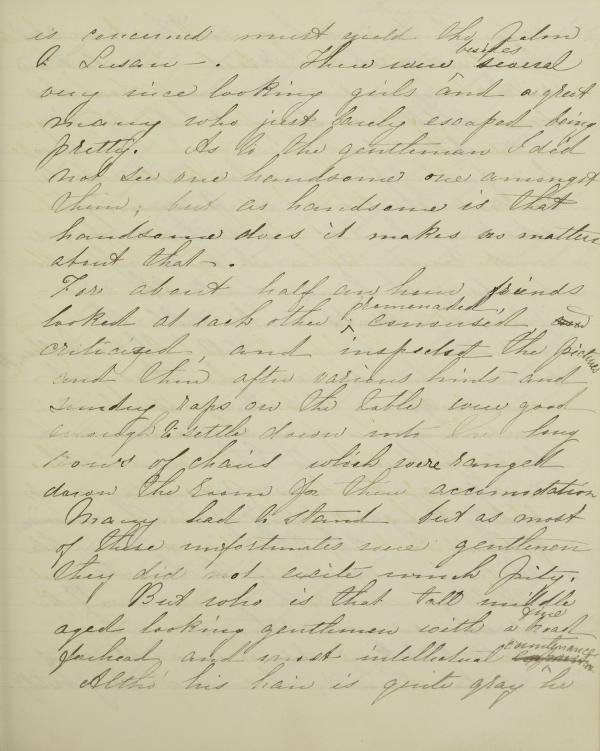 is concerned must yield the palm
to Susan -. There were besides several
very nice looking girls and a great
many who just barely escaped being
pretty. As to the gentlemen I did
not see one handsome one amongst
them, but as handsome is that
handsome does it makes no matter
about that.
For about half an hour friends
looked at each other, promenaded, and
criticized, and inspected the pictures
and then after various hints and
sundry raps on the table were good
enough to settle down into the long
rows of chairs which were ranged
down the room for their accomodation
Many had to stand but as most
of these unfortunates were gentlemen
they did not excite much pity.
But who is that tall middle
aged looking gentleman with a fine broad
forehead, and most intellectual countenance
Altho' his hair is quite gray he